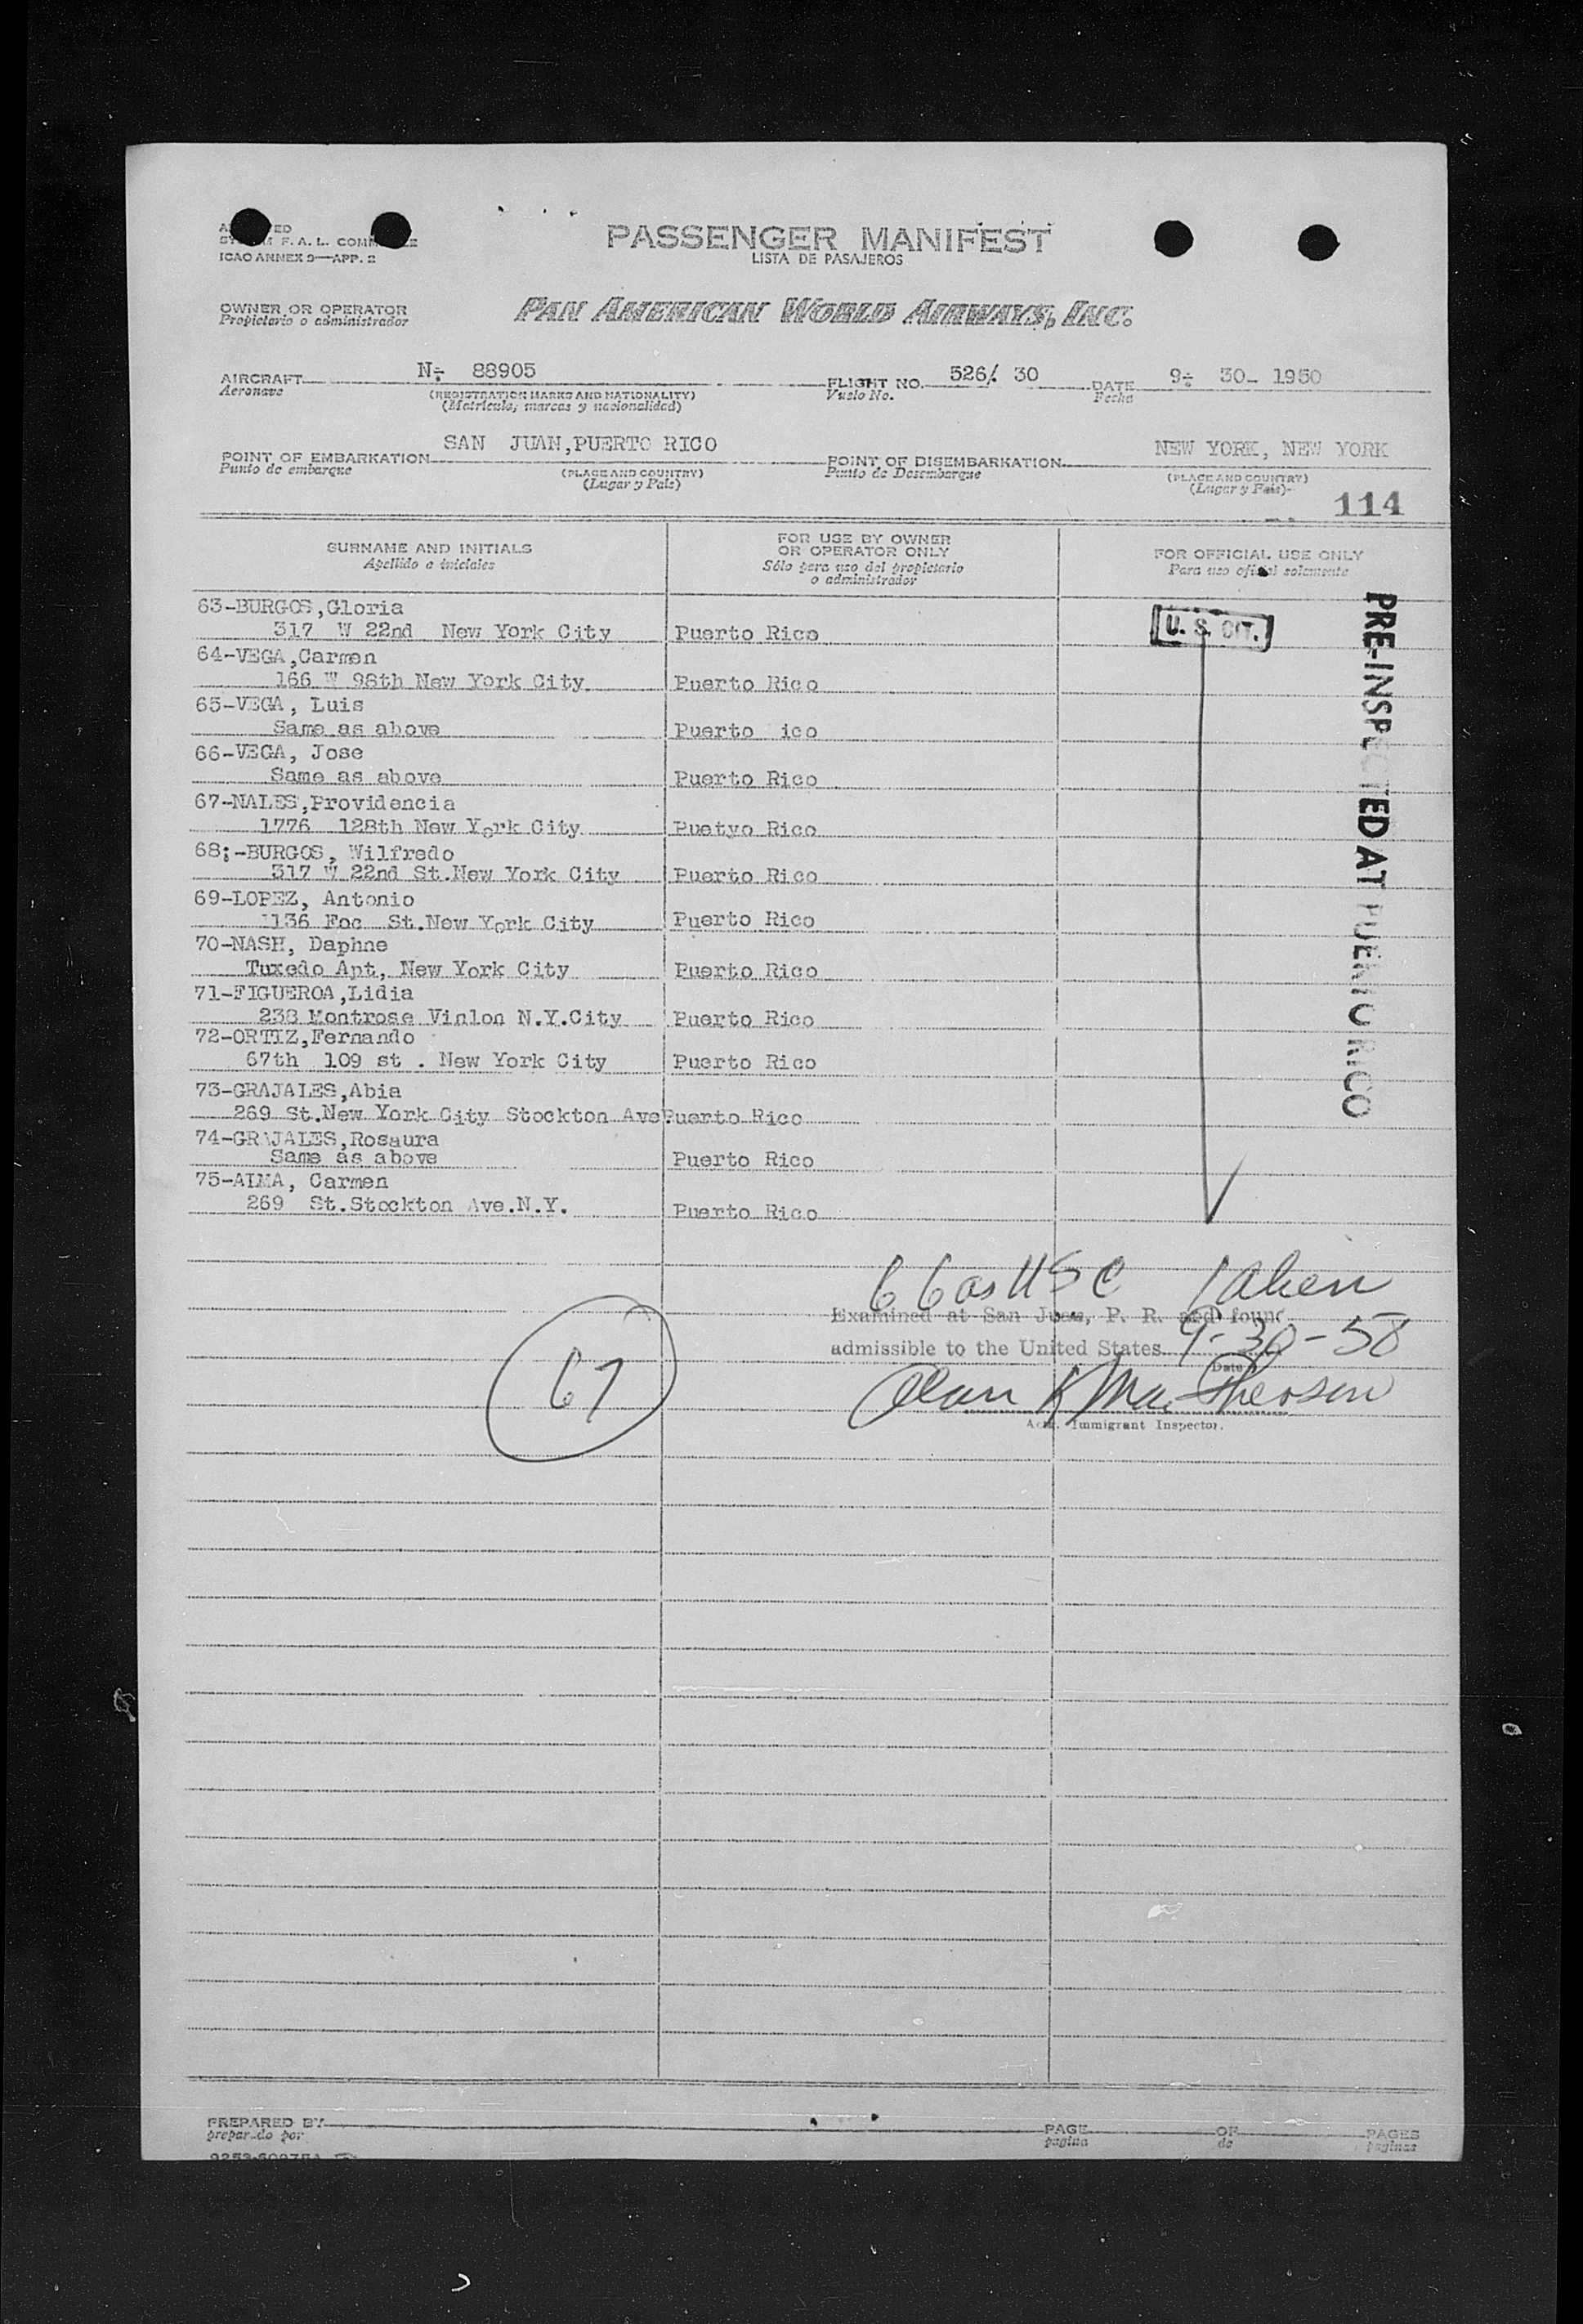 PASSENGER MANIFEST
LISTA DE PASAJEROS
ICAO ANNEX 9—APP. 2
OWNER OR OPERATOR
Propietario o administrador
PAN AMERICAN WORLD AIRWAYS, INC.
AIRCRAFT N÷ 88905 FLIGHT NO. 526/. 30 DATE 9÷ 30- 1950
Aeronave (REGISTRATION MARKS AND NATIONALITY) Vuelo No. Fecha
(Matrícula, marcas y nacionalidad)
POINT OF EMBARKATION SAN JUAN,PUERTO RICO POINT OF DISEMBARKATION NEW YORK, NEW YORK
Punto de embarque (PLACE AND COUNTRY) Punto de Desembarque (PLACE AND COUNTRY)
(Lugar y País) (Lugar y País)
114
SURNAME AND INITIALS FOR USE BY OWNER OR OPERATOR ONLY FOR OFFICIAL USE ONLY
Apellido e iniciales Sólo para uso del propietario o administrador Para uso oficial solamente
63-BURGOS,Gloria
317 W 22nd New York City Puerto Rico U. S. CIT.
64-VEGA,Carmen
166 W 98th New York City Puerto Rico
65-VEGA, Luis
Same as above Puerto ico
66-VEGA, Jose
Same as above Puerto Rico
67-NALES,Providencia
1776 128th New York City Puetyo Rico
68;-BURGOS, Wilfredo
317 W 22nd St.New York City Puerto Rico
69-LOPEZ, Antonio
1136 Foc St.New York City Puerto Rico
70-NASH, Daphne
Tuxedo Apt, New York City Puerto Rico
71-FIGUEROA,Lidia
238 Montrose Vinlon N.Y.City Puerto Rico
72-ORTIZ,Fernando
67th 109 st . New York City Puerto Rico
73-GRAJALES,Abia
269 St.New York City Stockton Ave Puerto Rico
74-GRAJALES,Rosaura
Same as above Puerto Rico
75-ALMA, Carmen
269 St.Stockton Ave.N.Y. Puerto Rico
PRE-INSPECTED AT PUERTO RICO
66 as USC 1 alien
Examined at San Juan, P. R. and found
admissible to the United States 9-30-50
Date
67
Immigrant Inspector.
PREPARED BY PAGE OF PAGES
preparado por página de páginas